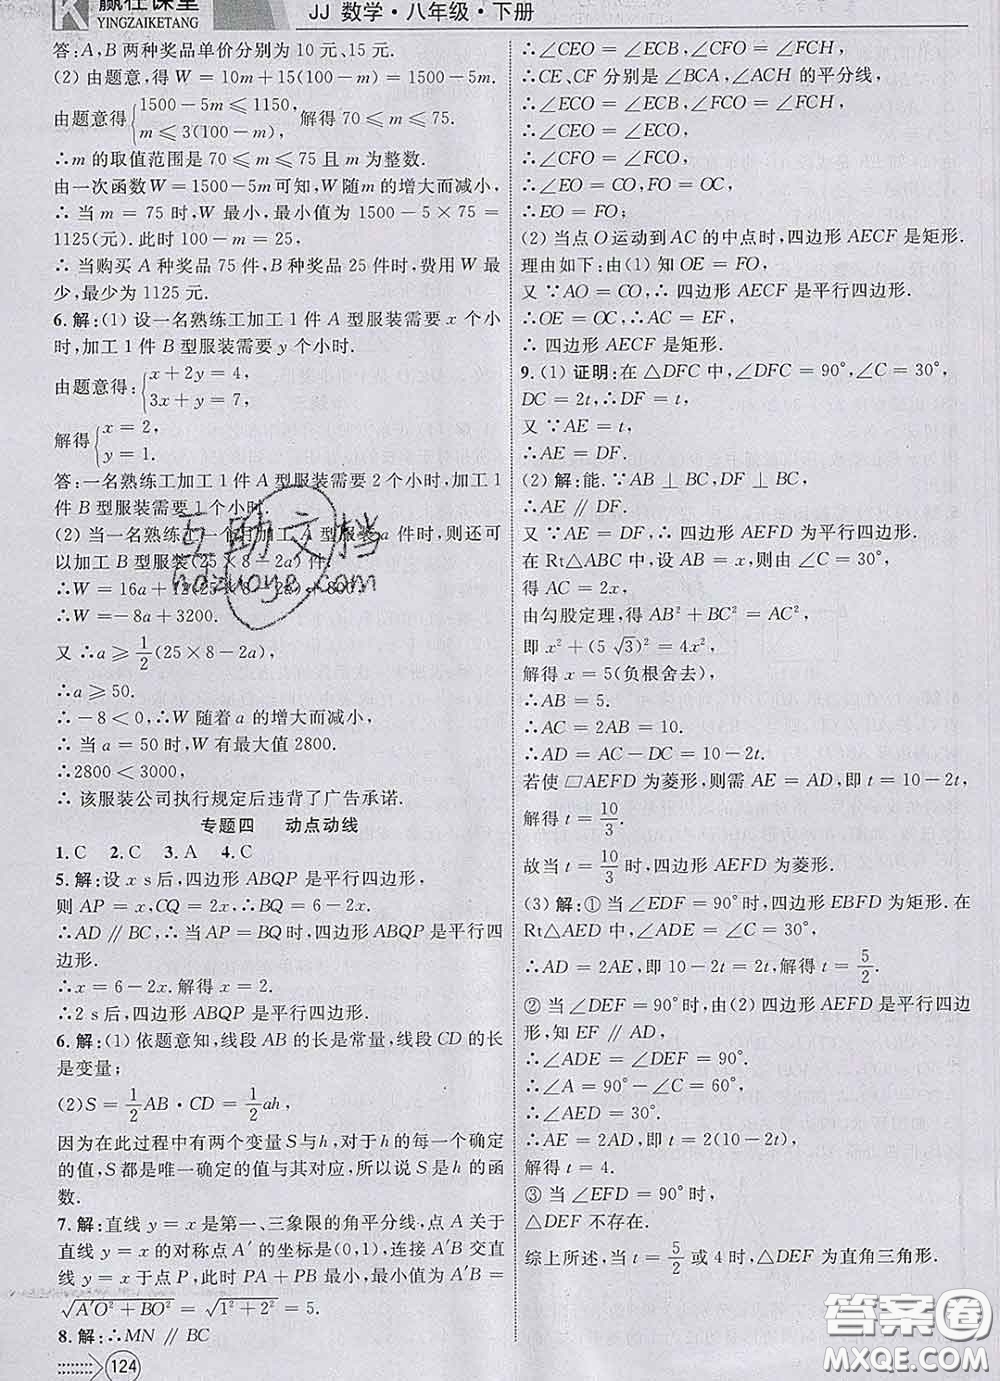 赢在课堂
YINGZAIKETANG
JJ 数学·八年级·下册
答:A,B 两种奖品单价分别为 10 元、15 元.
(2) 由题意,得 W = 10m + 15(100 - m) = 1500 - 5m.
由题意得{1500 - 5m ⩽ 1150, m ⩽ 3(100 - m). 解得 70 ⩽ m ⩽ 75.
∴m 的取值范围是 70 ⩽ m ⩽ 75 且 m 为整数.
由一次函数W = 1500-5m可知,W 随m的增大而减小,
∴ 当 m = 75 时,W 最小,最小值为 1500 - 5 × 75 =
1125(元). 此时 100 - m = 25,
∴ 当购买 A 种奖品 75 件,B 种奖品 25 件时,费用 W 最
少,最少为 1125 元.
6. 解:(1) 设一名熟练工加工 1 件 A 型服装需要 x 个小
时,加工 1 件 B 型服装需要 y 个小时.
由题意得:{x + 2y = 4, 3x + y = 7,
解得{x = 2, y = 1.
答:一名熟练工加工 1 件 A 型服装需要 2 个小时,加工 1
件 B 型服装需要 1 个小时.
(2) 当一名熟练工一个月加工 A 型服装 a 件时,则还可
以加工 B 型服装(25 × 8 - 2a)件.
∴W = 16a + 12(25 × 8 - 2a) + 800.
∴W = -8a + 3200.
又 ∴a ⩾ 1/2(25 × 8 - 2a),
∴a ⩾ 50.
∴ - 8 < 0,∴W 随着 a 的增大而减小,
∴ 当 a = 50 时,W 有最大值 2800.
∴2800 < 3000,
∴ 该服装公司执行规定后违背了广告承诺.
专题四 动点动线
1. C 2. C 3. A 4. C
5. 解:设 x s后,四边形 ABQP 是平行四边形,
则 AP = x,CQ = 2x,∴BQ = 6 - 2x.
∴AD ∥ BC,∴当AP = BQ时,四边形ABQP 是平行四
边形.
∴x = 6 - 2x. 解得 x = 2.
∴2 s 后,四边形 ABQP 是平行四边形.
6. 解:(1) 依题意知,线段 AB 的长是常量,线段 CD 的长
是变量;
(2)S = 1/2 AB · CD = 1/2 ah,
因为在此过程中有两个变量 S与h,对于h的每一个确定
的值,S都是唯一确定的值与其对应,所以说 S是h 的函
数.
7. 解:直线 y = x 是第一、三象限的角平分线,点 A 关于
直线 y = x 的对称点A′ 的坐标是(0,1),连接 A′B 交直
线 y = x 于点 P,此时 PA + PB 最小,最小值为 A′B =
√(A′O² + BO²) = √(1² + 2²) = 5.
8. 解:∴MN ∥ BC
124
∴∠CEO = ∠ECB,∠CFO = ∠FCH,
∴CE、CF 分别是 ∠BCA,∠ACH 的平分线,
∴∠ECO = ∠ECB,∠FCO = ∠FCH,
∴∠CEO = ∠ECO,
∴∠CFO = ∠FCO,
∴EO = CO,FO = OC,
∴EO = FO;
(2) 当点O运动到 AC 的中点时,四边形 AECF 是矩形.
理由如下:由(1) 知 OE = FO,
又 ∵AO = CO,∴ 四边形 AECF 是平行四边形.
∴OE = OC,∴AC = EF,
∴ 四边形 AECF 是矩形.
9. (1) 证明:在 △DFC 中,∠DFC = 90°,∠C = 30°,
DC = 2t,∴DF = t,
又 ∵AE = t,
∴AE = DF.
(2) 解:能. ∵AB ⊥ BC,DF ⊥ BC,
∴AE ∥ DF.
又 ∵AE = DF,∴ 四边形 AEFD 为平行四边形.
在 Rt△ABC 中,设 AB = x,则由 ∠C = 30°,
得 AC = 2x,
由勾股定理,得 AB² + BC² = AC²,
即 x² + (5√3)² = 4x²,
解得 x = 5(负根舍去),
∴AB = 5.
∴AC = 2AB = 10.
∴AD = AC - DC = 10 - 2t.
若使 ▱AEFD 为菱形,则需 AE = AD,即 t = 10 - 2t,
解得 t = 10/3.
故当 t = 10/3 时,四边形 AEFD 为菱形.
(3) 解:① 当∠EDF = 90°时,四边形 EBFD 为矩形. 在
Rt△AED 中,∠ADE = ∠C = 30°,
∴AD = 2AE,即 10 - 2t = 2t,解得 t = 5/2.
② 当 ∠DEF = 90°时,由(2) 四边形 AEFD 是平行四边
形,知 EF ∥ AD,
∴∠ADE = ∠DEF = 90°.
∴∠A = 90° - ∠C = 60°,
∴∠AED = 30°.
∴AE = 2AD,即 t = 2(10 - 2t),
解得 t = 4.
③ 当 ∠EFD = 90°时,
△DEF 不存在.
综上所述,当 t = 5/2 或 4 时,△DEF 为直角三角形.
互助文档
hdzuoye.com
答案圈
MXQE.COM